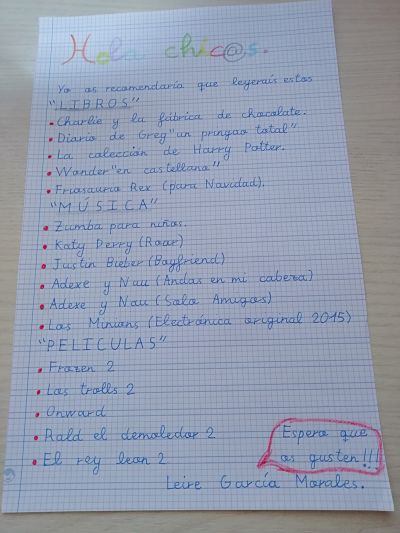 Hola chic@s.
Yo os recomendaría que leyerais estos
"LIBROS"
• Charlie y la fábrica de chocolate.
• Diario de Greg "un pringao total"
• La colección de Harry Potter.
• Wonder "en castellano"
• Friosaurio Rex (para Navidad).
"MÚSICA"
• Zumba para niños.
• Katy Perry (Roar)
• Justin Bieber (Boyfriend)
• Adexe y Nau (Andas en mi cabeza)
• Adexe y Nau (Solo Amigos)
• Los Minions (Electrónica original 2015)
"PELICULAS"
• Frozen 2
• Los trolls 2
• Onward
• Rald el demoledor 2
• El rey leon 2
Espero que
os gusten!!!
Leire García Morales.